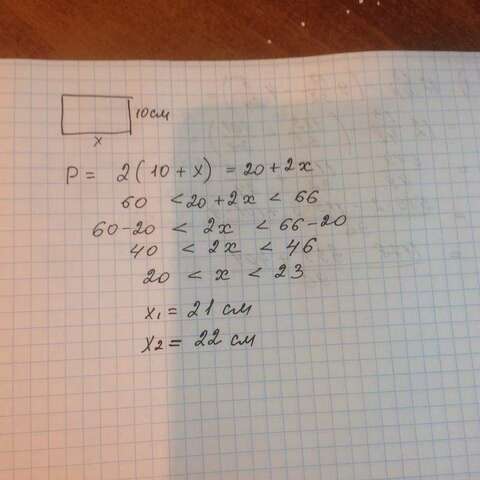 10см
x
P = 2(10 + x) = 20 + 2x
60 < 20 + 2x < 66
60-20 < 2x < 66-20
40 < 2x < 46
20 < x < 23
x₁ = 21 см
x₂ = 22 см